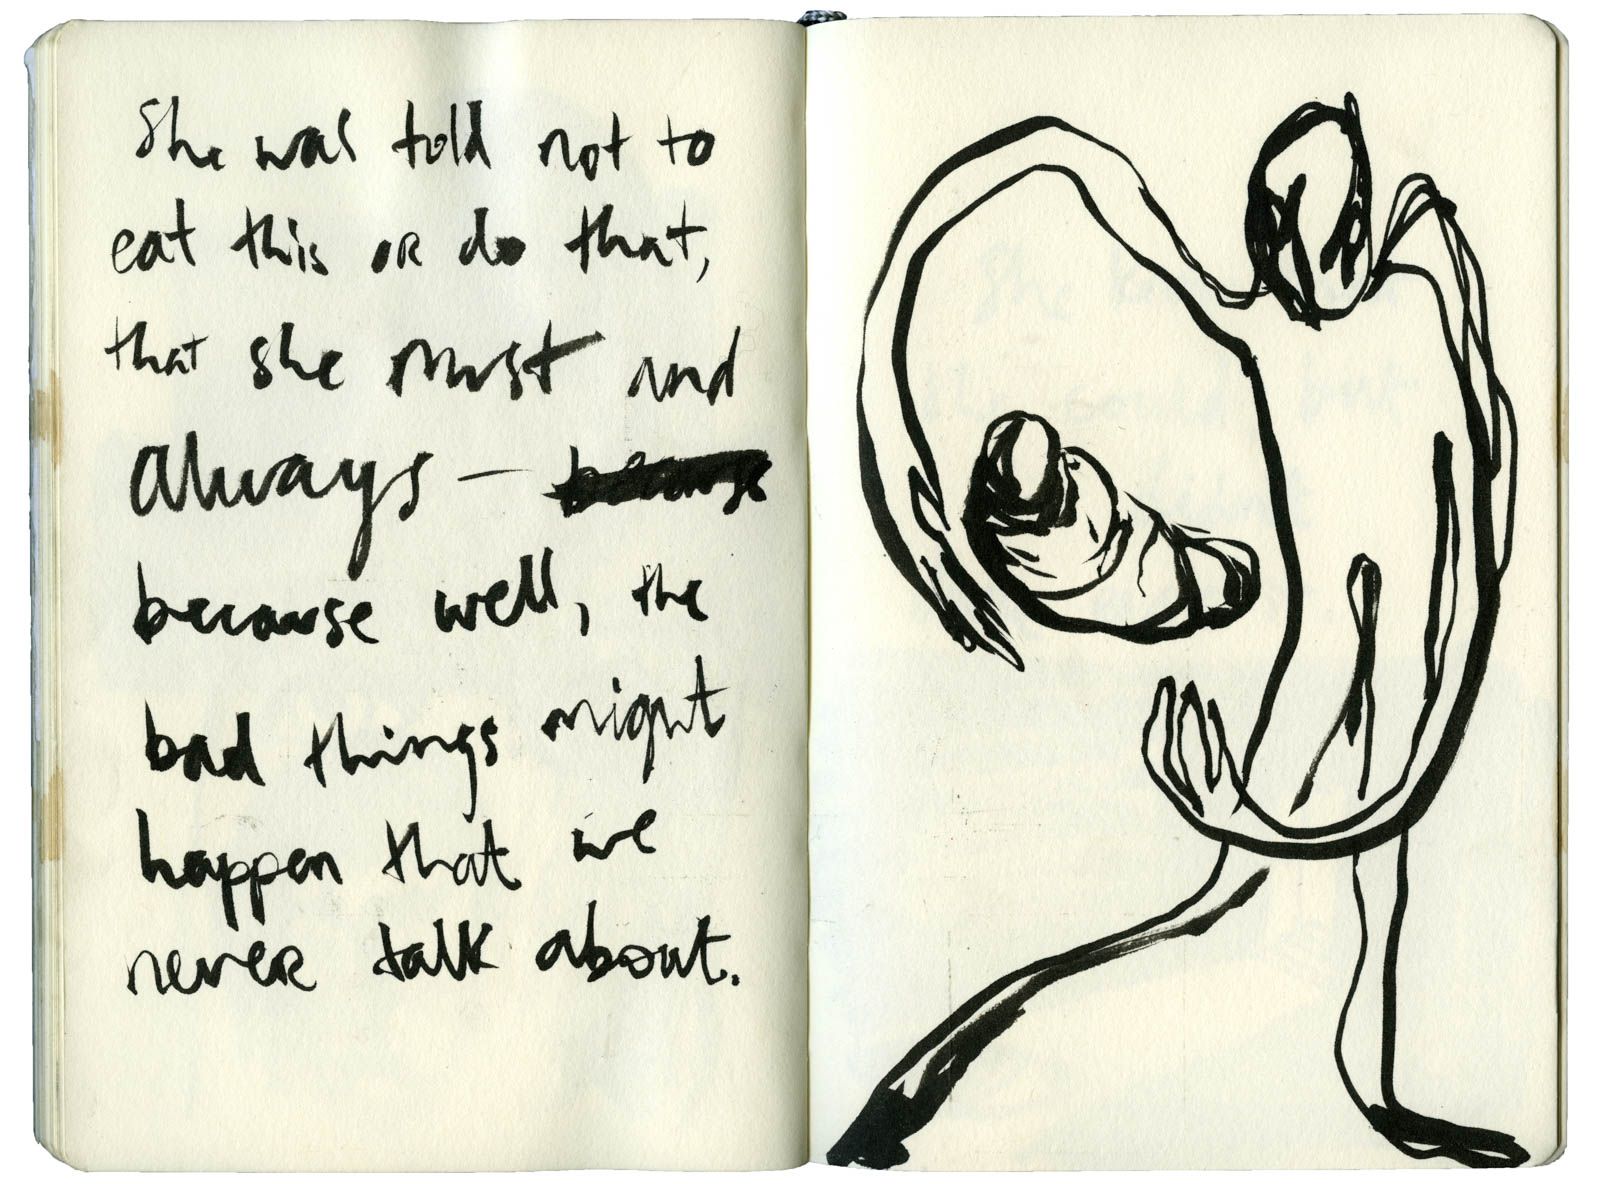 She was told not to
eat this or do that,
that she must and
always — because
because well, the
bad things might
happen that we
never talk about.